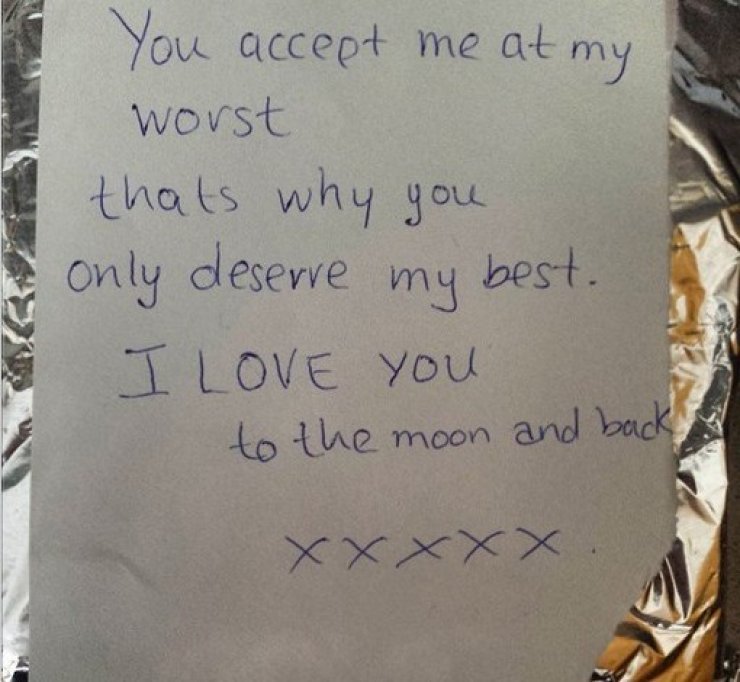 You accept me at my
worst
thats why you
only deserve my best.
I LOVE YOU
to the moon and back
xxxxx.